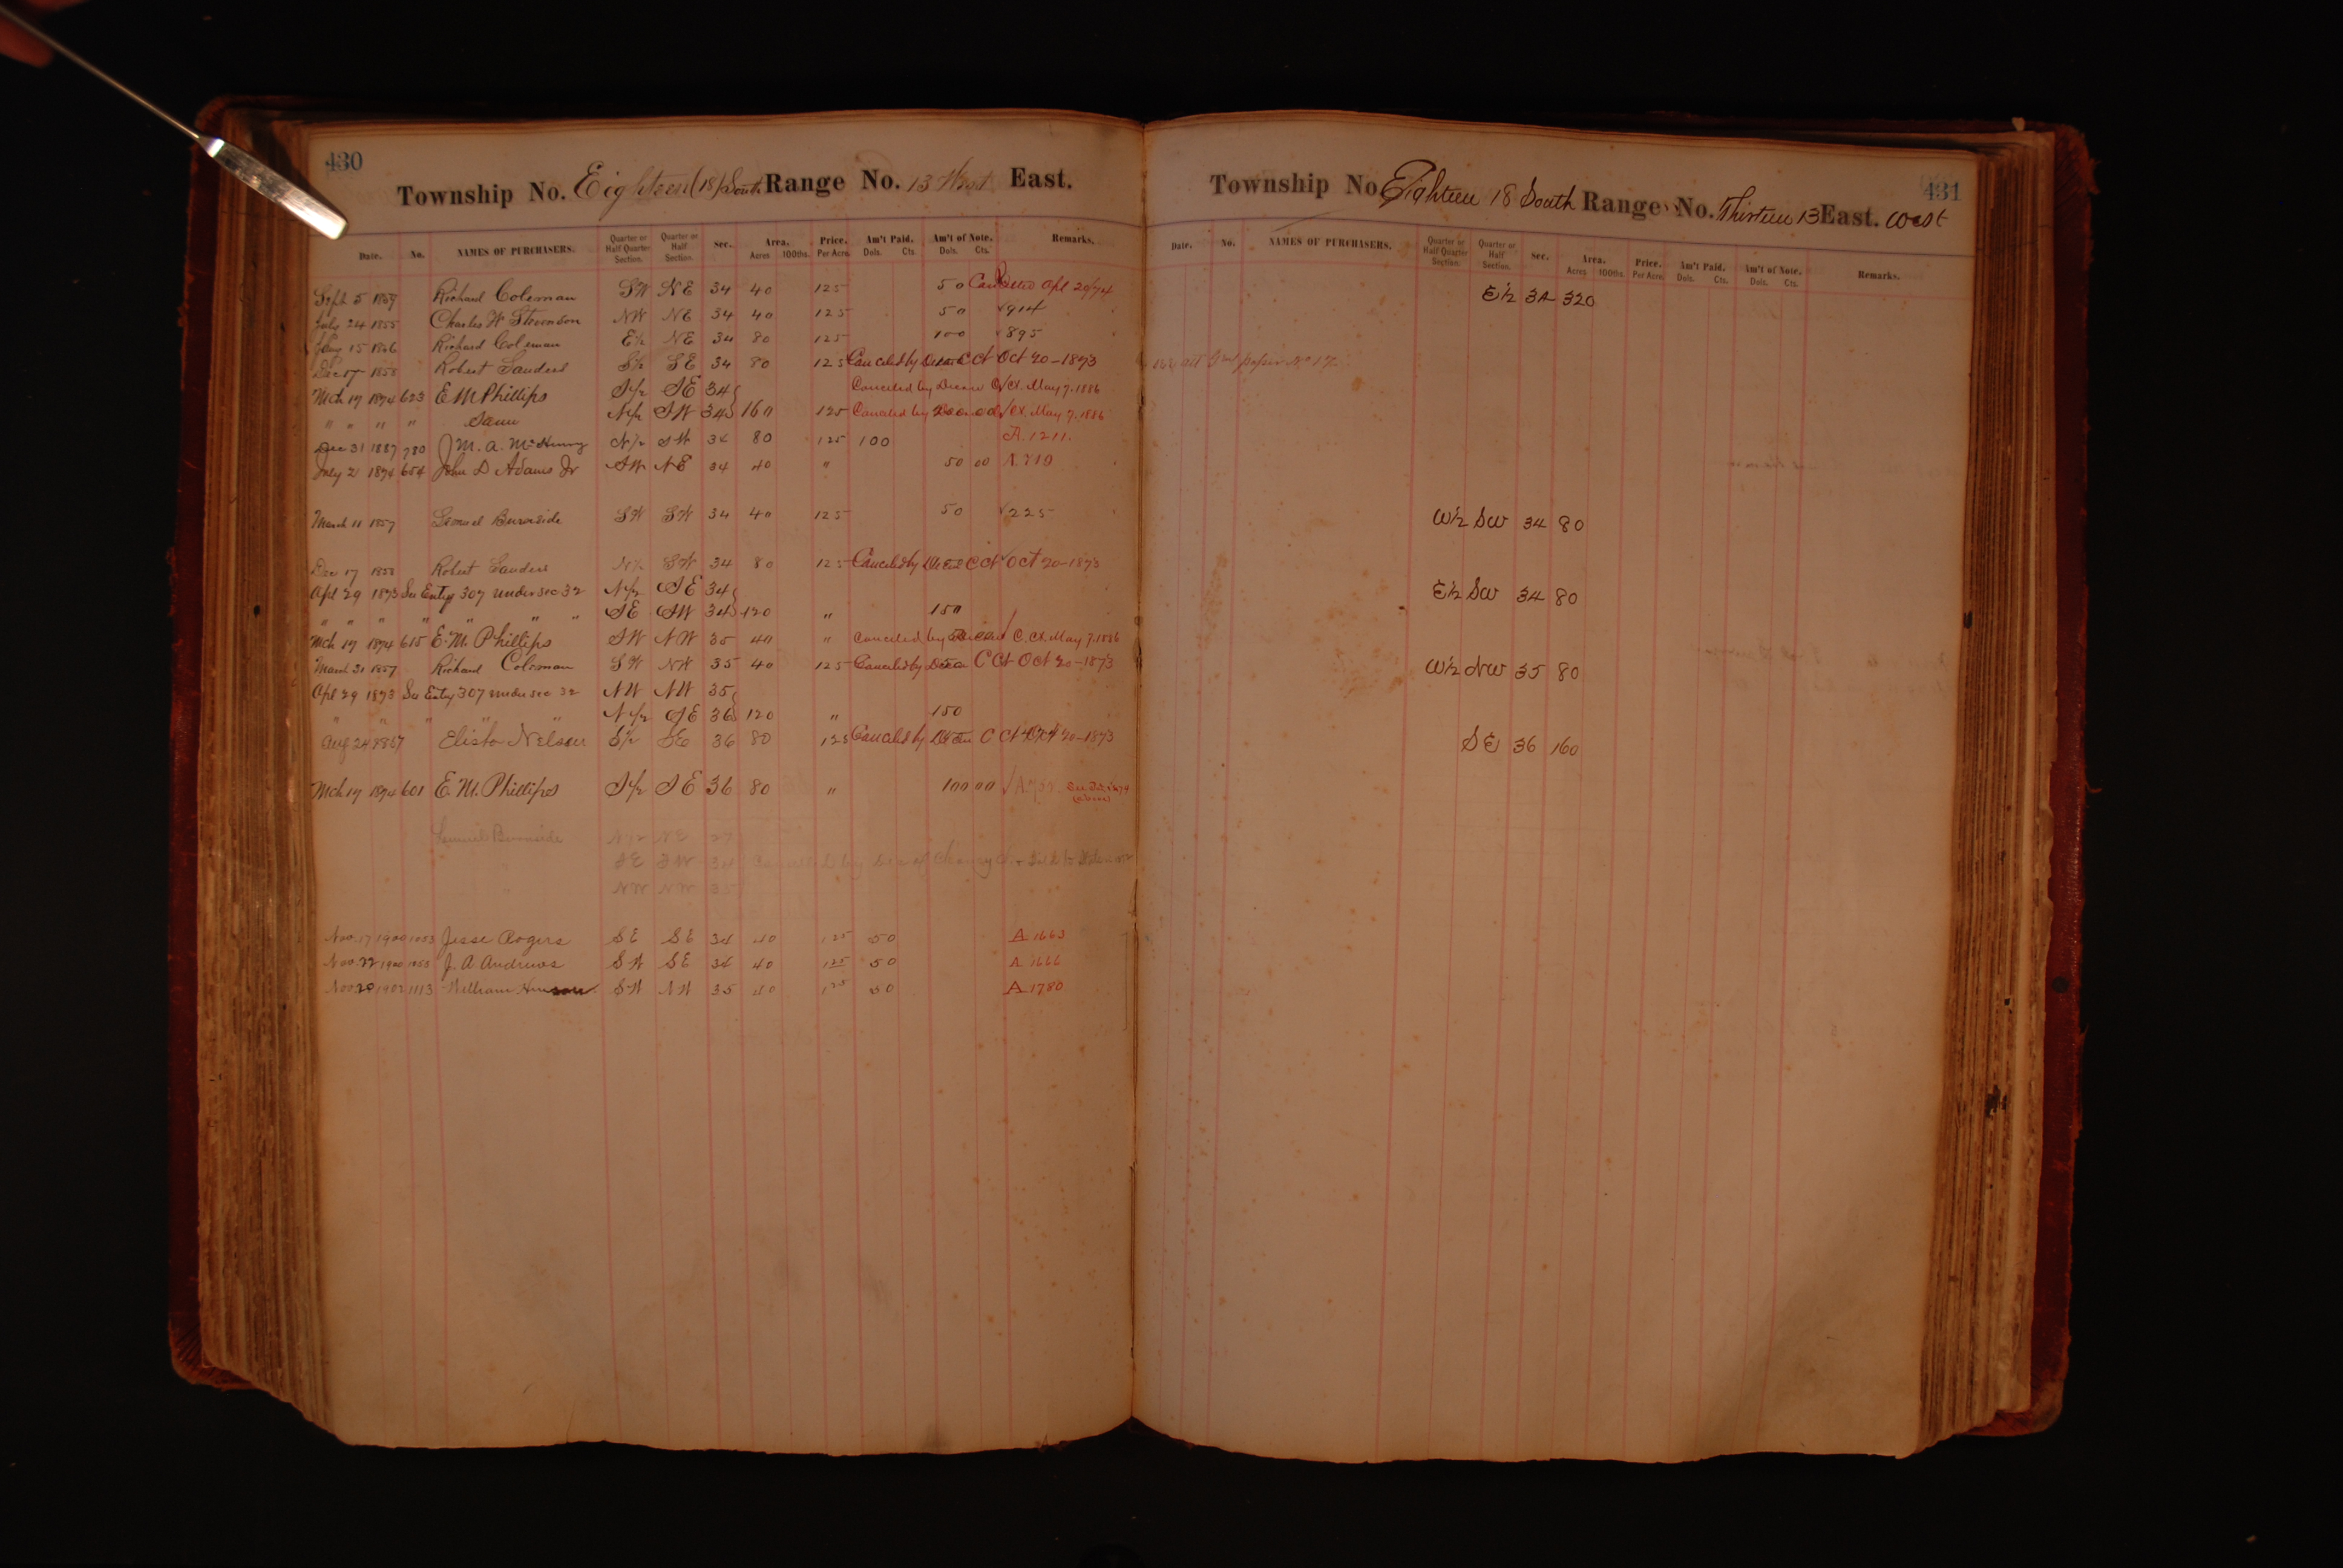 430
Township No. Eighteen (18) South Range No. 13 West East.
Date. No. NAMES OF PURCHASERS. Quarter or Half Quarter Section. Quarter or Half Section. Sec. Area. Acres 100ths. Price. Per Acre. Am't Paid. Dols. Cts. Am't of Note. Dols. Cts. Remarks.
Sept 5 Richard Coleman SW NE 34 40 125 50 Canceled Apl 20/74
July 24 1855 Charles W Stevenson NW NE 34 40 125 50 √914
15 Richard Coleman E½ NE 34 80 125 100 √895
Dec 17 1858 Robert Sanders S½ SE 34 80 125 Canceled by Decree C Ct Oct 20-1873
Mch 17 1874 623 E M Phillips S½ SE 34 Canceled by Decree C/Ct. May 7. 1886
" " " " Same N½ SW 34 160 125 Canceled by 200.00 /Ct. May 7. 1886
Dec 31 1887 780 J M. A. McHenry N½ SW 34 80 125 100 A. 1211.
July 2 1874 654 John D Adams Jr SW NE 34 40 " 50 00 A. 719
March 11 1857 Lemuel Burnside SW SW 34 40 125 50 √225
Dec 17 1858 Robert Sanders N½ SW 34 80 125 Canceled by Decree C Ct Oct 20-1873
Apl 29 1873 See Entry 307 under sec 32 N½ SE 34
" " " " " " SE SW 34 120 " 150
Mch 17 1874 615 E. M. Phillips SW NW 35 40 " Canceled by Decree C. Ct. May 7. 1886
March 31 1857 Richard Coleman SW NW 35 40 125 Canceled by Decree C Ct Oct 20-1873
Apl 29 1873 See Entry 307 under sec 32 NW NW 35
" " " " " N½ SE 36 120 " 150
Aug 24 1857 Nelson S½ SE 36 80 125 Canceled by Decree C Ct Oct 20-1873
Mch 17 1874 601 E. M. Phillips S½ SE 36 80 " 100 00 √
Lemuel Burnside N½ NE 27
SE SW 34 Canceled by
" NW NW 35
Nov. 17 1900 1053 Jesse Rogers SE SE 34 40 125 50 A 1663
Nov. 22 1900 1055 J. A. Andrews SW SE 34 40 125 50 A 1666
Nov 20 1902 1113 William SW NW 35 40 125 50 A 1780
431
Township No. Eighteen 18 South Range No. Thirteen 13 East. West
Date. No. NAMES OF PURCHASERS. Quarter or Half Quarter Section. Quarter or Half Section. Sec. Area. Acres 100ths. Price. Per Acre. Am't Paid. Dols. Cts. Am't of Note. Dols. Cts. Remarks.
E½ 34 320
W½ SW 34 80
E½ SW 34 80
W½ NW 35 80
SE 36 160